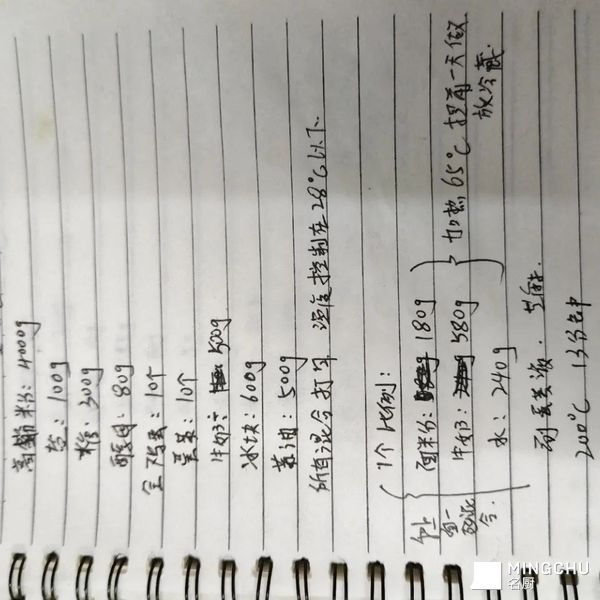 高粉: 4000g
盐: 100g
糖: 300g
酵母: 80g
全鸡蛋: 10个
蛋黄: 10个
牛奶: 500g
冰块: 600g
黄油: 500g
所有混合打耳 温度控制在28℃以下
1个比例:
面粉: 180g
牛奶: 580g
水: 240g
加热65℃ 提前一天做
放冷藏.
刷蛋液. 芝麻
200℃ 13分钟
MINGCHU
名厨